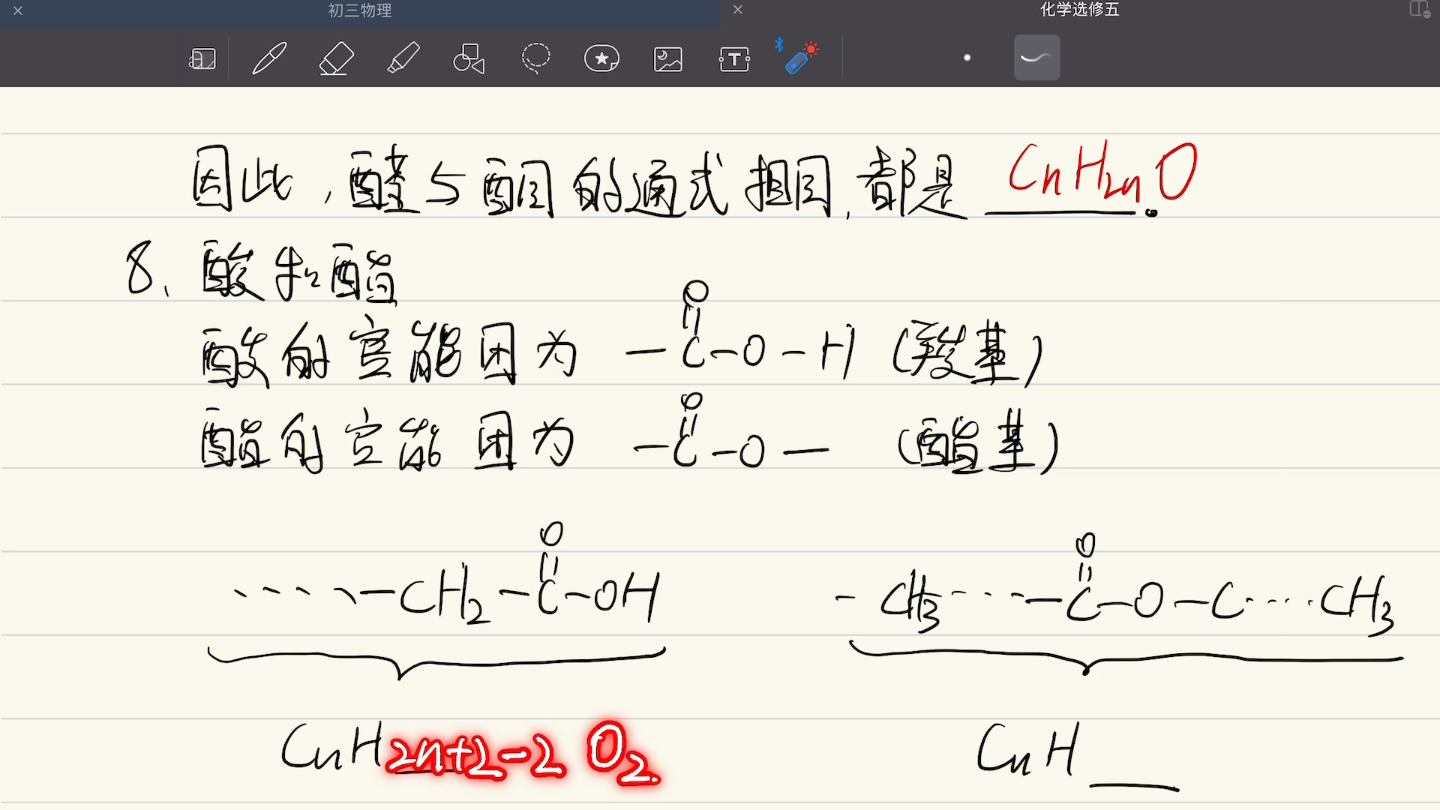 初三物理
化学选修五
因此，醛与酮的通式相同，都是 CnH2nO.
8、酸和酯
酸的官能团为 -C(=O)-O-H (羧基)
酯的官能团为 -C(=O)-O- (酯基)
····-CH2-C(=O)-OH
-CH3···-C(=O)-O-C····CH3
CnH2n+2-2 O2.
CnH__